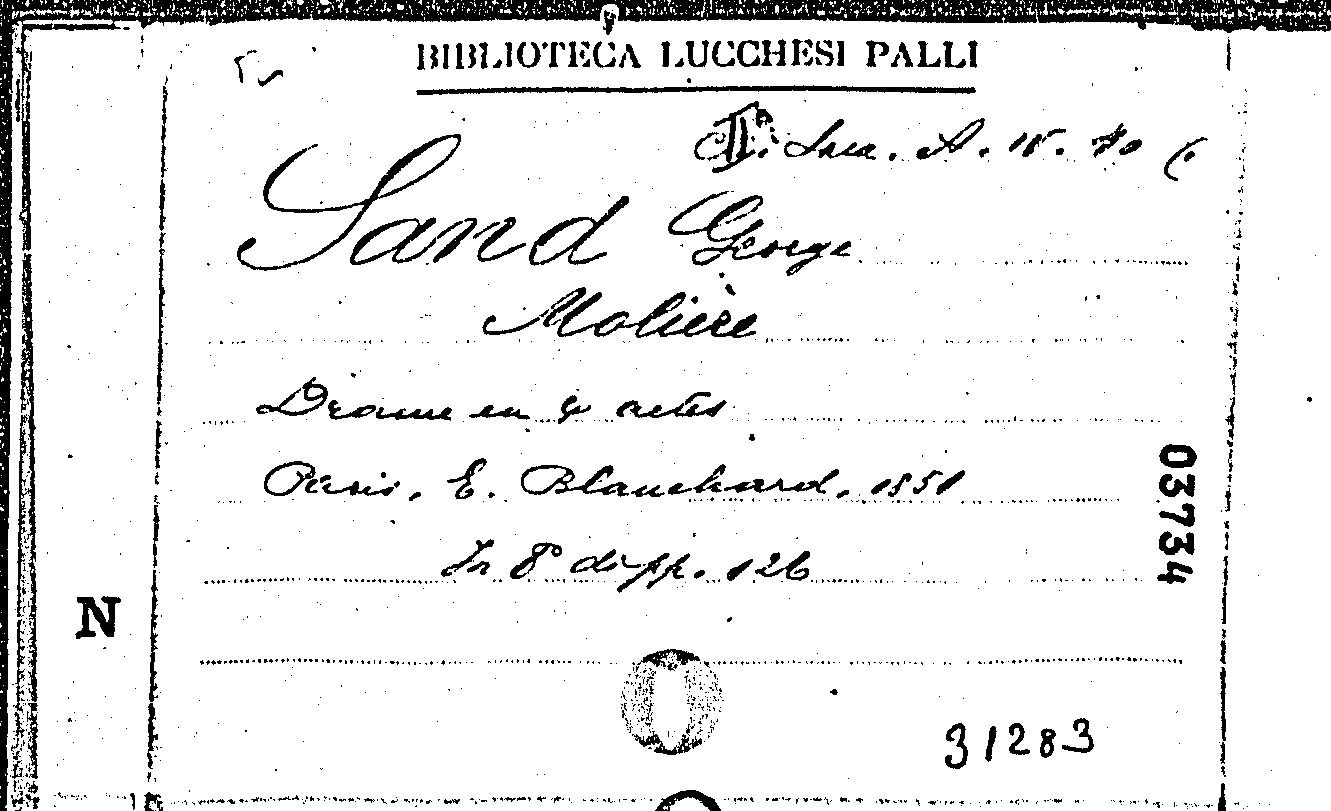 BIBLIOTECA LUCCHESI PALLI
Sand George
Molière
Drame en 4 actes
Paris, E. Blanchard, 1851
In 8° di pp. 126
03734
N
31283